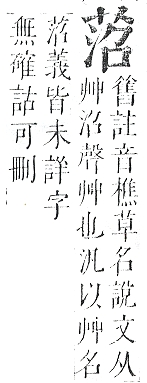 菬
舊註音樵草名說文从
艸沼聲艸也汎以艸名
菬義皆未詳字
無確詁可刪